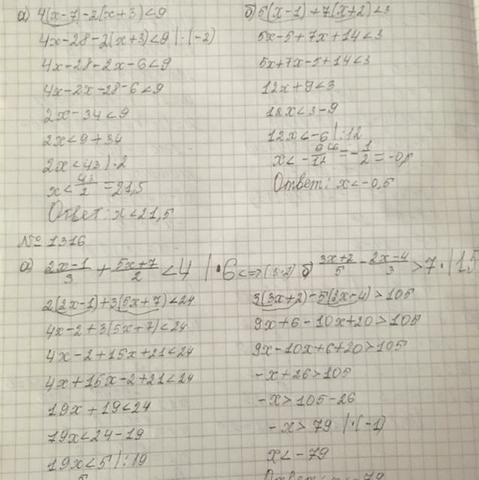 а) 4(x-7)-2(x+3)<9
4x-28-2(x+3)<9 |:(-2)
4x-28-2x-6<9
4x-2x-28-6<9
2x-34<9
2x<9+34
2x<43 |:2
x<43/2=21,5
Ответ: x<21,5
б) 5(x-1)+7(x+2)<3
5x-5+7x+14<3
5x+7x-5+14<3
12x+9<3
12x<3-9
12x<-6 |:12
x<-6/12=-1/2=-0,5
Ответ: x<-0,5
№ 1316
а) (2x-1)/3+(5x+7)/2<4 |·6 <=> (3·2)
2(2x-1)+3(5x+7)<24
4x-2+3(5x+7)<24
4x-2+15x+21<24
4x+15x-2+21<24
19x+19<24
19x<24-19
19x<5 |:19
б) (3x+2)/5-(2x-4)/3>7·|15
3(3x+2)-5(2x-4)>105
9x+6-10x+20>105
9x-10x+6+20>105
-x+26>105
-x>105-26
-x>79 |·(-1)
x<-79